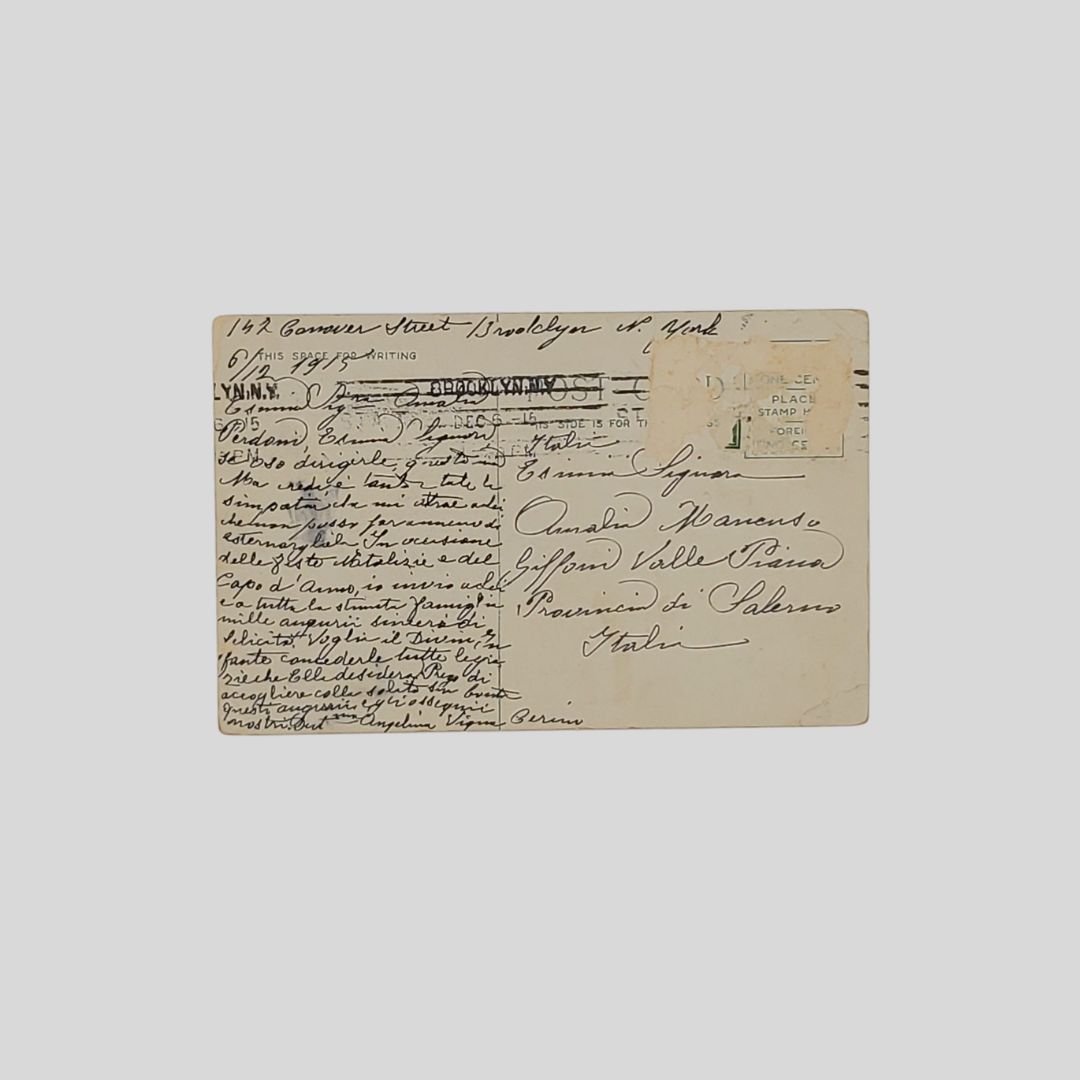 142 Conover Street Brooklyn N. York
6/12 1915
THIS SPACE FOR WRITING
LYN.N.Y. BROOKLYN.N.Y.
POST C D
DEC 6 - 15
IS SIDE IS FOR TH SS
ONE CEN
PLACE
STAMP H
FOREI
Esimia Sig.ra Amalia
Perdoni, Esimia Signora,
se oso dirigerle, questo
Ma tant tale la
simpatia che mi attrae a lei
che non posso far a meno di
esternargliela. In occasione
delle feste Natalizie e del
Capo d'Anno, io invio a lei
e a tutta la stimata famiglia
mille augurii sinceri di
felicità. Voglia il Divin In
fante concederle tutte le gra
zie che Ella desidera. Prego di
accogliere colla solita sua bontà
questi augurii e gli ossequii
nostri. Angelina Vigna Cerino
Italia
Esimia Signora
Amalia Mancuso
Giffoni Valle Piana
Provincia di Salerno
Italia